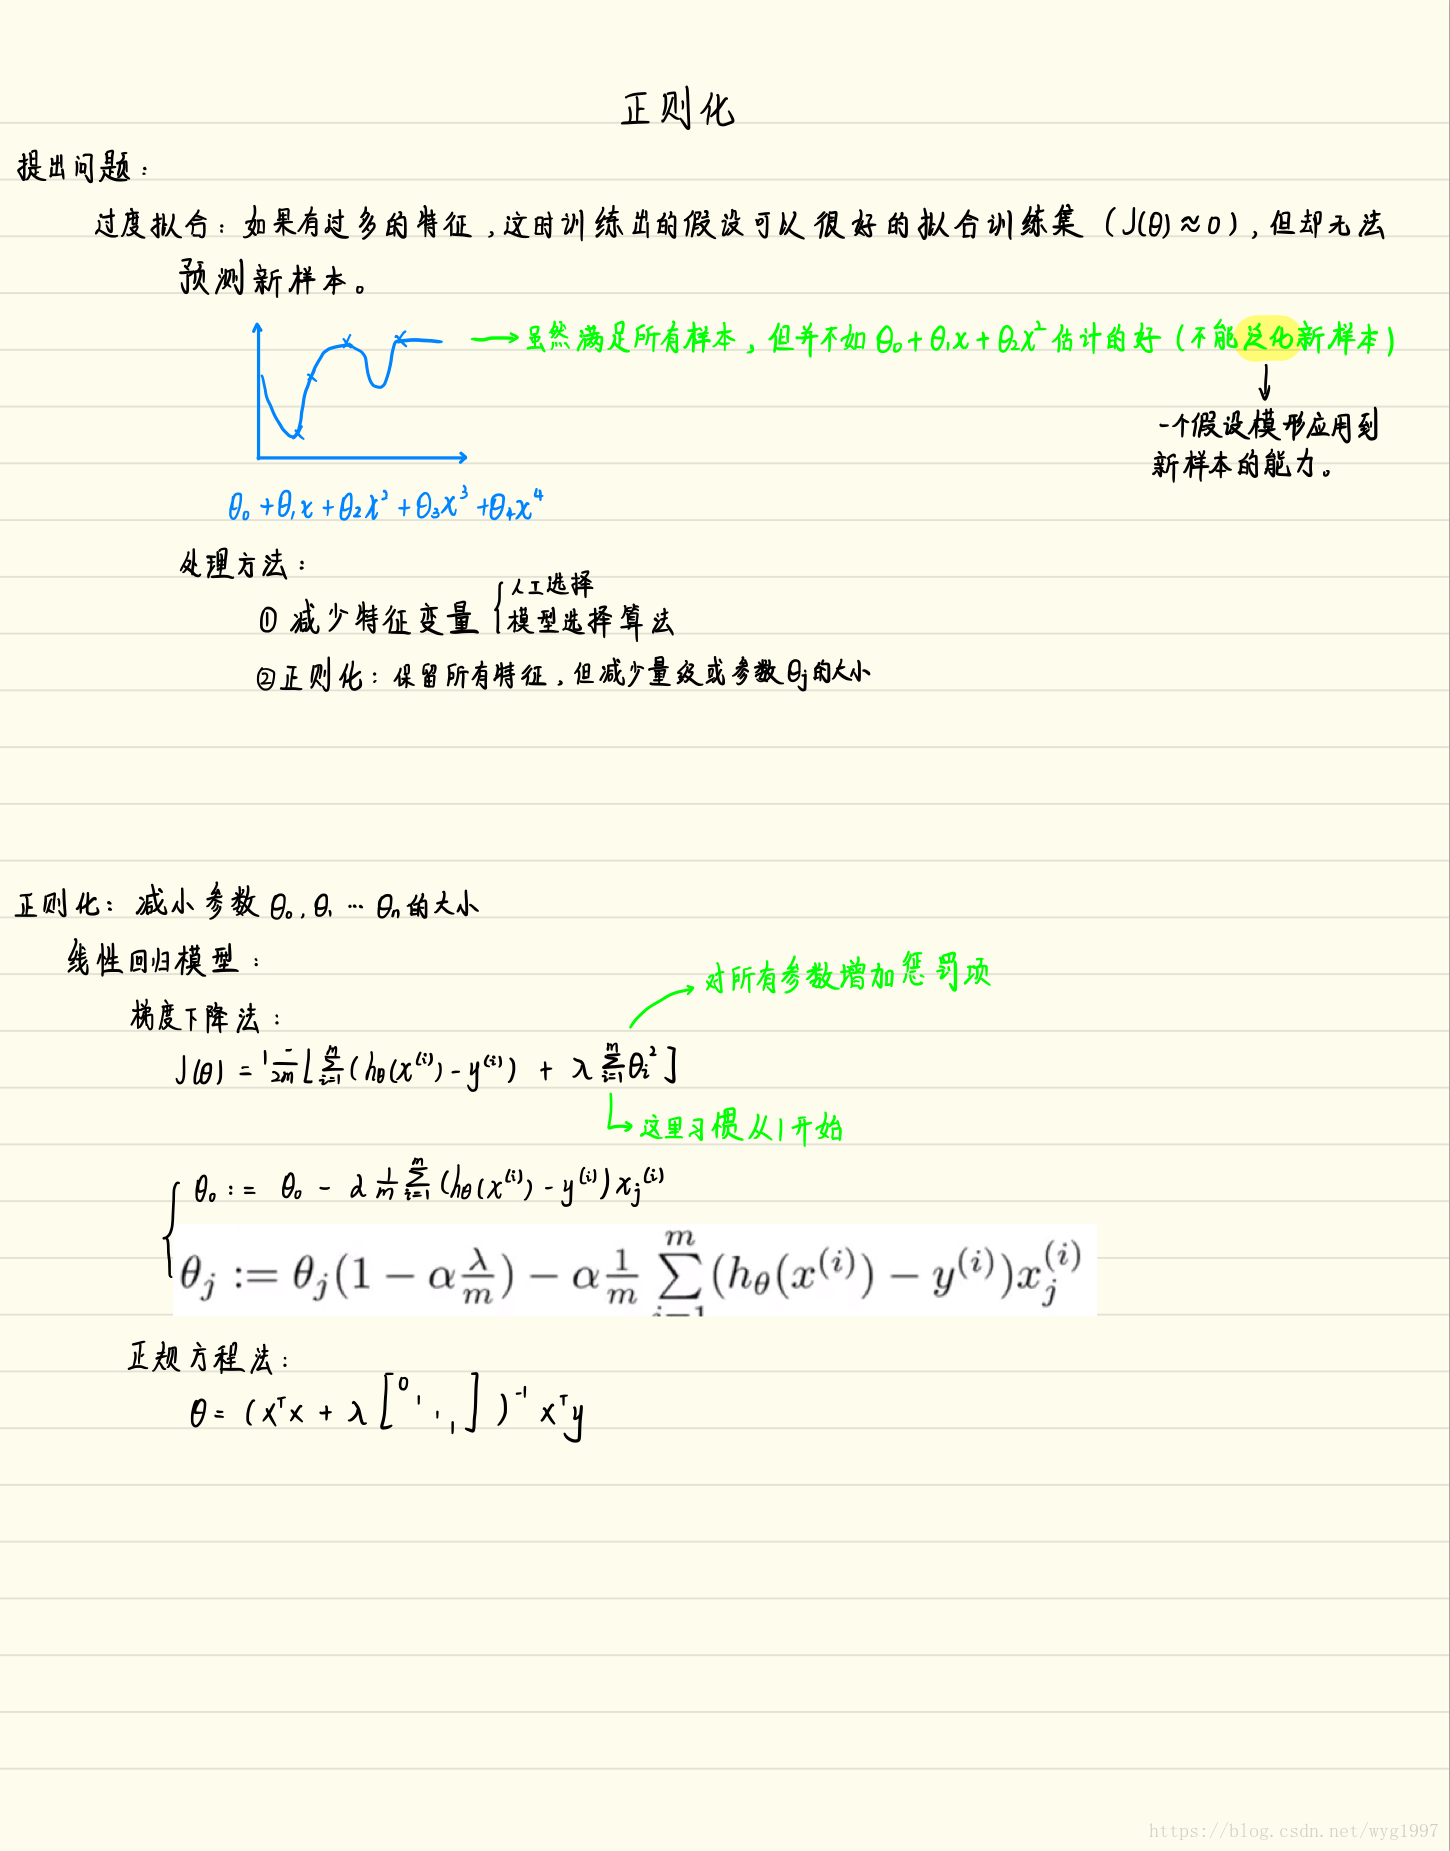 正则化
提出问题：
过度拟合：如果有过多的特征，这时训练出的假设可以很好的拟合训练集（J(θ)≈0），但却无法
预测新样本。
虽然满足所有样本，但并不如 θ₀+θ₁x+θ₂x² 估计的好（不能泛化新样本）
一个假设模形应用到
新样本的能力。
θ₀+θ₁x+θ₂x²+θ₃x³+θ₄x⁴
处理方法：
人工选择
① 减少特征变量
模型选择算法
②正则化：保留所有特征，但减少量级或参数θj的大小
正则化：减小参数 θ₀,θ₁ … θn的大小
线性回归模型：
对所有参数增加惩罚项
梯度下降法：
J(θ) = 1/2m [ Σ_{i=1}^{m} (hθ(x^(i)) - y^(i)) + λ Σ_{i=1}^{m} θi² ]
这里习惯从1开始
θ₀ := θ₀ - α 1/m Σ_{i=1}^{m} (hθ(x^(i)) - y^(i)) xj^(i)
θj := θj(1 - α λ/m) - α 1/m Σ_{i=1}^{m} (hθ(x^(i)) - y^(i)) xj^(i)
正规方程法：
θ = (xᵀx + λ [0 1 1 1])⁻¹ xᵀy
https://blog.csdn.net/wyg1997